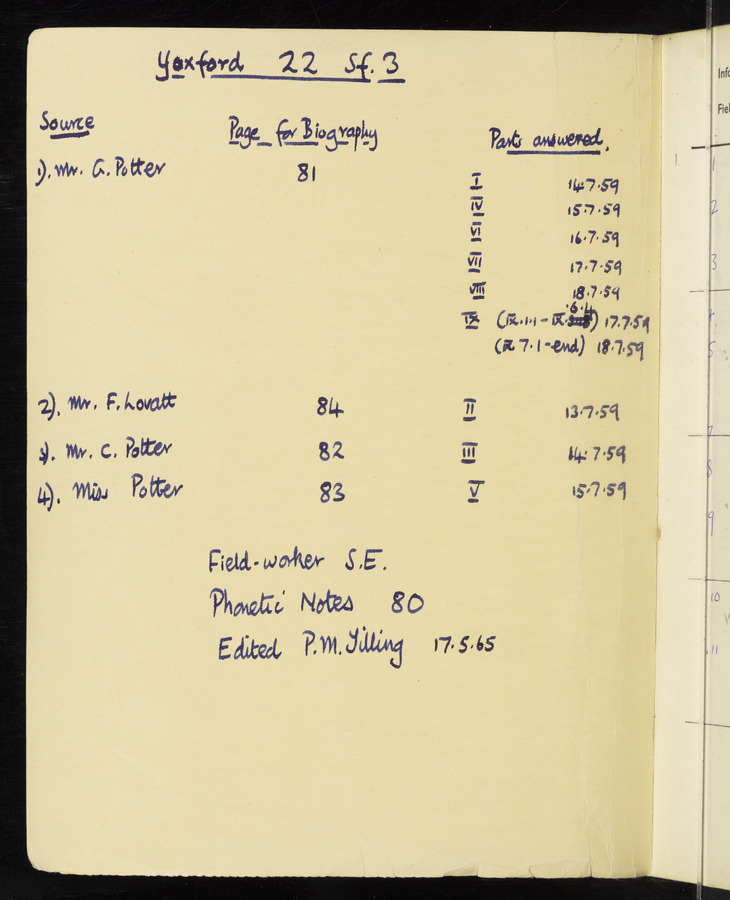 Yoxford 22 Sf. 3
Source Page for Biography Parts answered.
1). Mr. G. Potter 81
I 14.7.59
IV 15.7.59
VI 16.7.59
VII 17.7.59
VIII 18.7.59
.6.4
IX (IX.1.1 - IX ) 17.7.59
(IX 7.1 - end) 18.7.59
2). Mr. F. Lovatt 84 II 13.7.59
3). Mr. C. Potter 82 III 14.7.59
4). Miss Potter 83 V 15.7.59
Field-worker S.E.
Phonetic Notes 80
Edited P.M. Tilling 17.5.65
Info
Fiel
1.
1
2
3
4
5
7
8
9
10
11